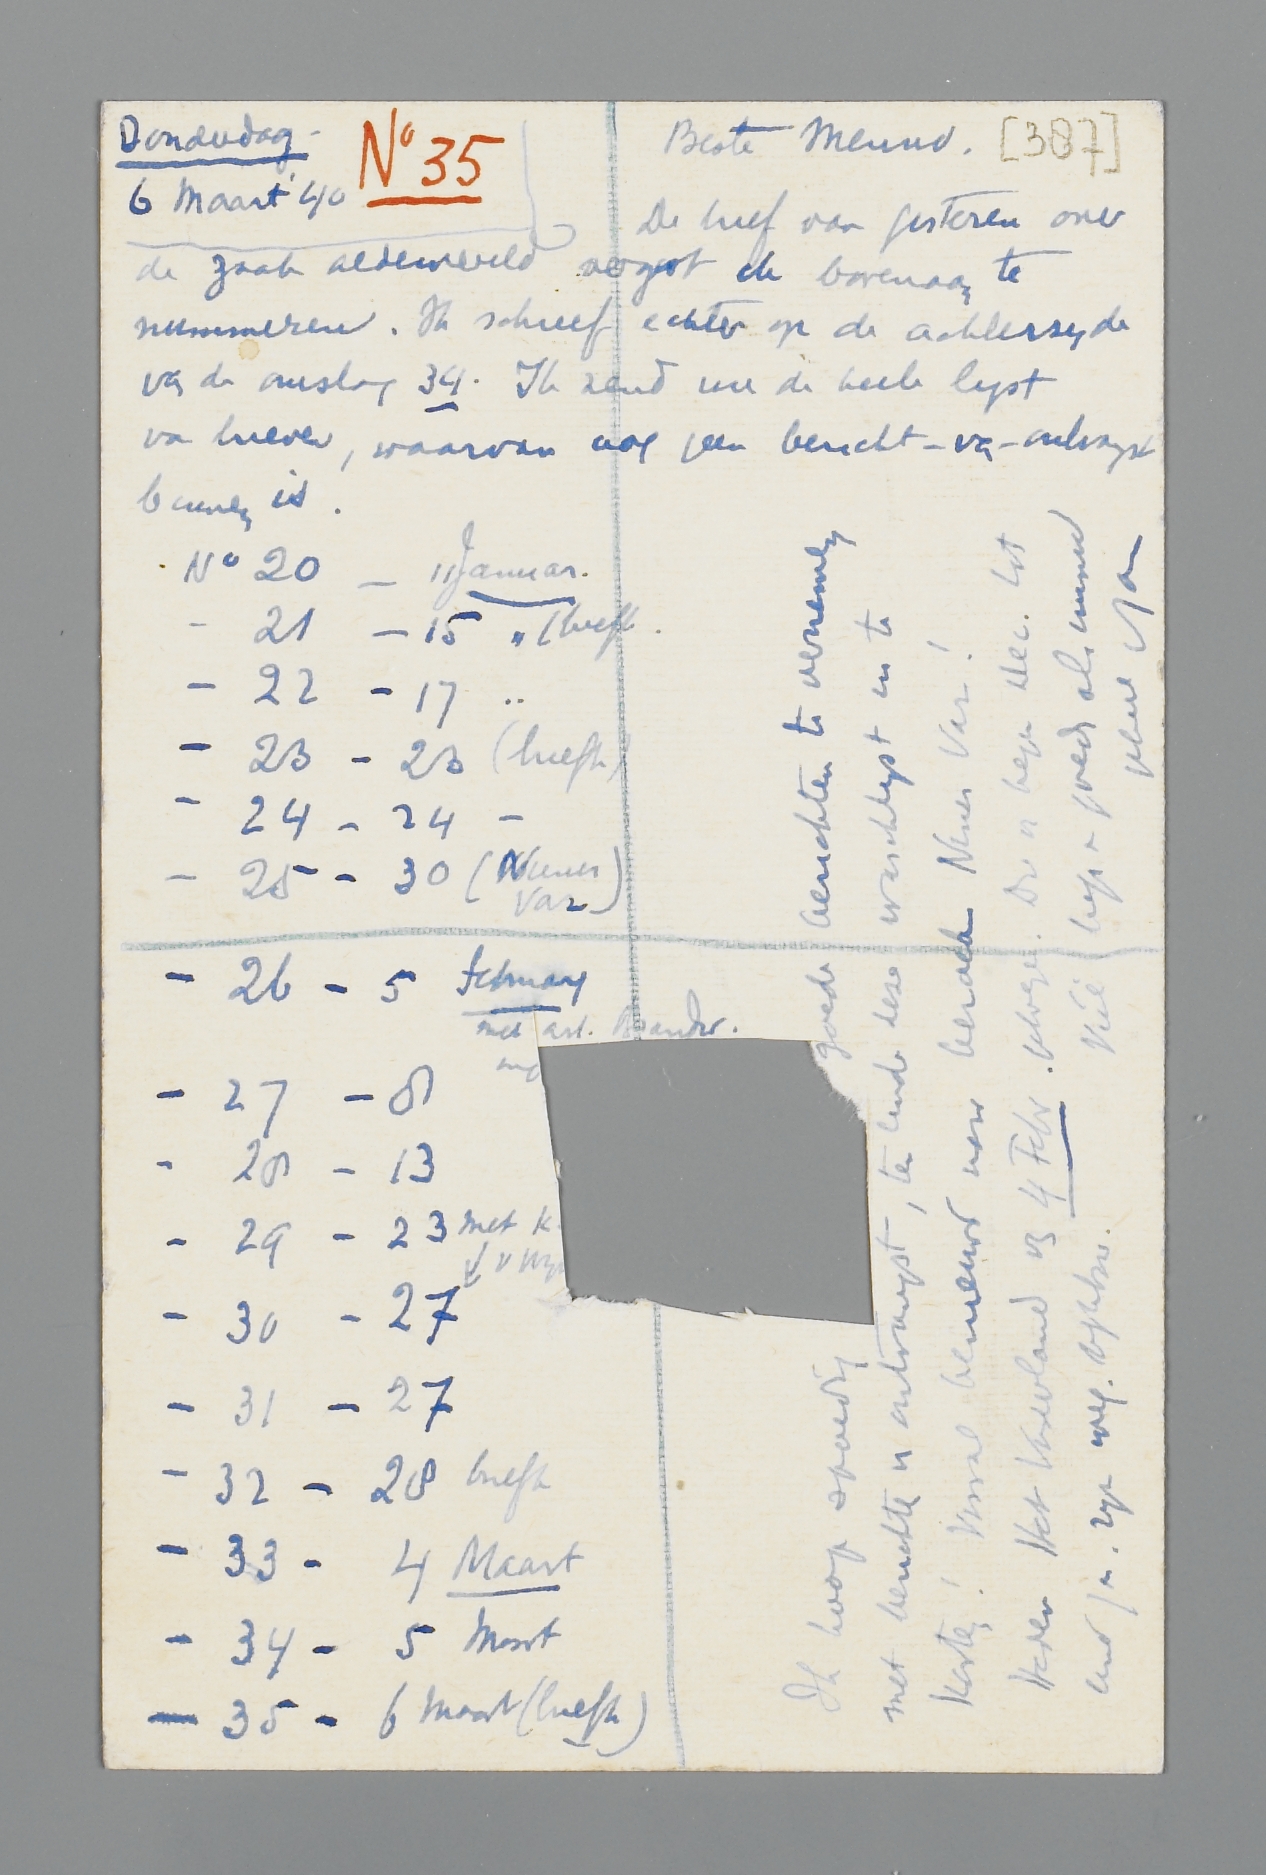 Donderdag
6 Maart '40
N° 35
Beste Menno. [387]
De brief van gisteren over
de zaak aldewereld vergat ik bovenaan te
nummeren. Ik schreef echter op de achterzyde
va de omslag 34. Ik zend nu de heele lyst
va brieven, waarvan nog geen bericht-va-ontvangst
binnen is.
N° 20 - 11 Januar.
- 21 - 15 " (briefk.
- 22 - 17 "
- 23 - 23 (briefk)
- 24 - 24 -
- 25 - 30 (Nunes
Vaz)
- 26 - 5 February
met art.
- 27 - 8
- 28 - 13
- 29 - 23 met k
- 30 - 27
- 31 - 27
- 32 - 28 briefk
- 33 - 4 Maart
- 34 - 5 Maart
- 35 - 6 Maart (briefk)
Ik hoop spoedig goede berichten te vernemen
met berichten v ontvangst, ten einde deze waschlyst in te
korten! Vooral benieuwd naar bericht Nunes Vaz!
Het Vaderland v 4 Febr. Dec. tot
en zyn weg.
Viele goeds als immer
geheel Jan